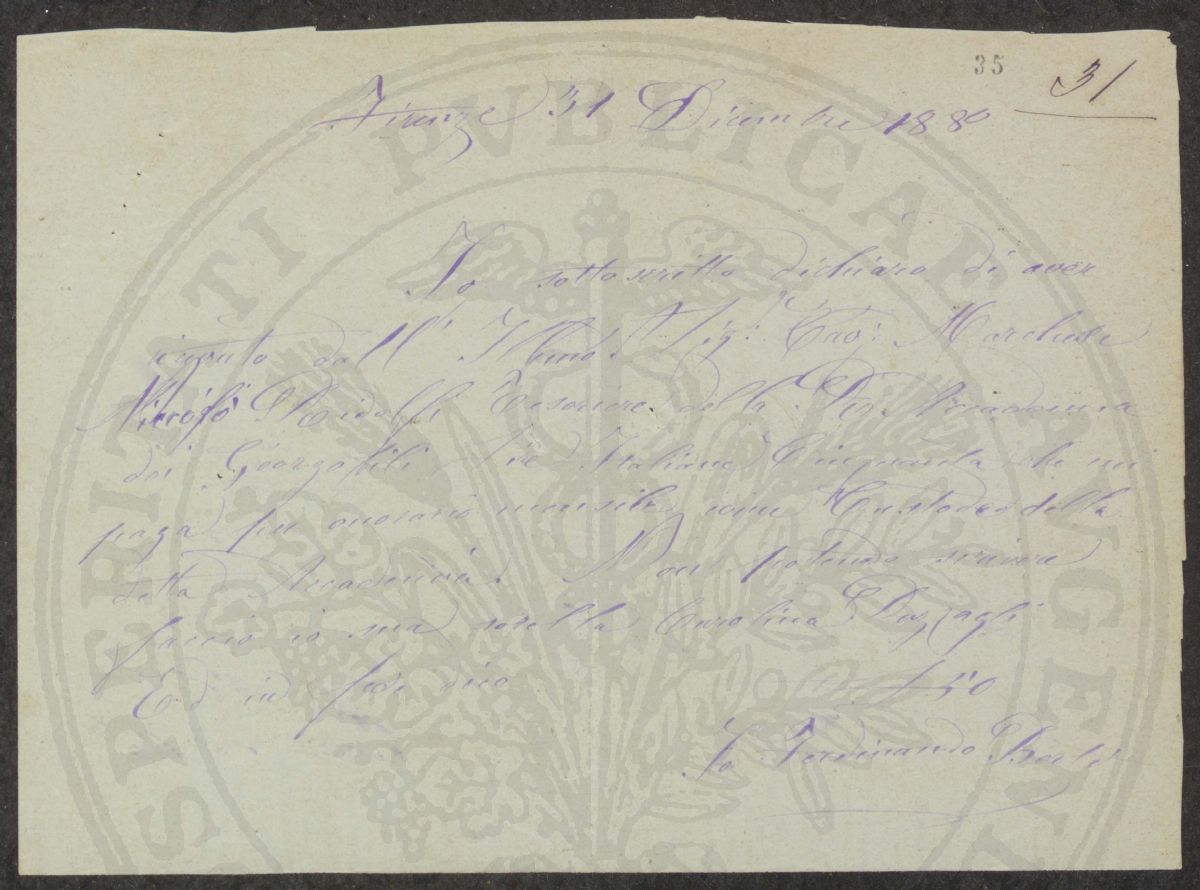 35 31
Firenze 31 Dicembre 1880
Io sottoscritto dichiaro di aver
ricevuto dall' Illmo. Sig: Cav: Marchese
Niccolò Ridolfi Tesoriere della Accademia
dei Georgofili Lire Italiane Cinquanta che mi
paga per onorario mensile come Custode della
detta Accademia. Non potendo scrivere
faccio io sua sorella Carolina
Ed in fede dico
£ 50
Io Ferdinando
PROSPERITATI PVBLICAE AVGENDAE